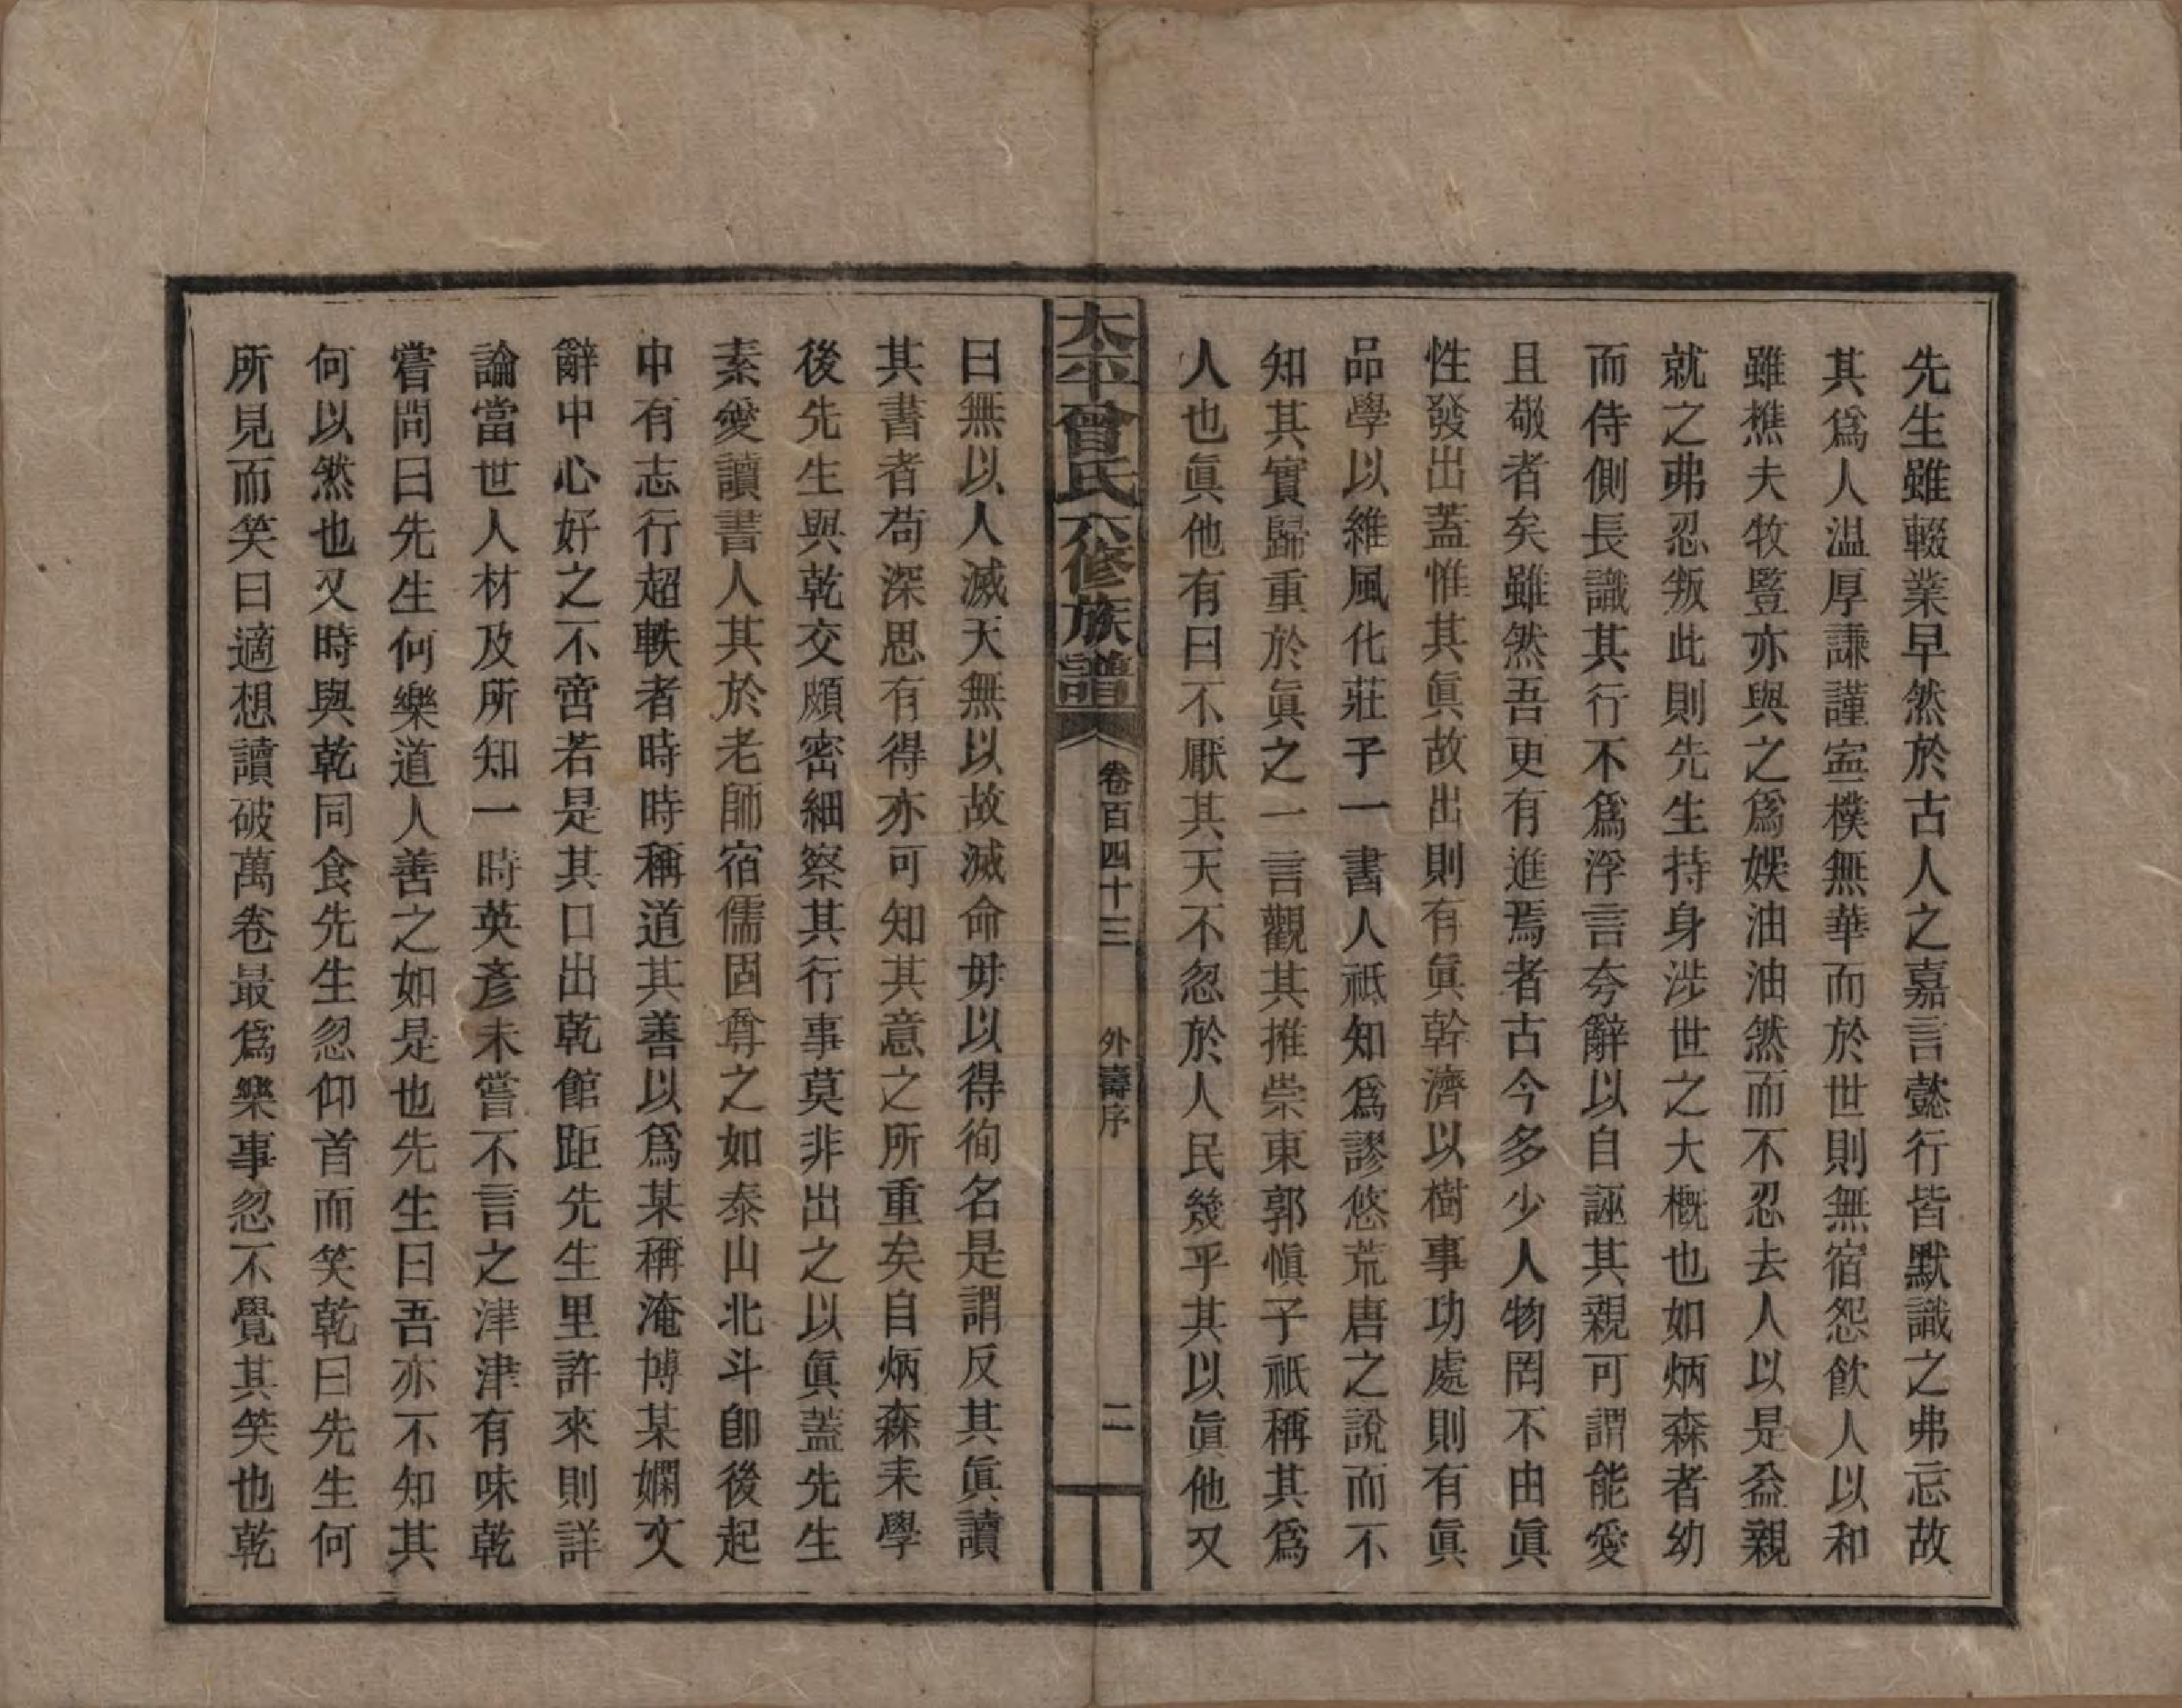 先生雖輟業早然於古人之嘉言懿行皆默識之弗忘故
其爲人温厚謙謹寍樸無華而於世則無宿怨飲人以和
雖樵夫牧豎亦與之爲娛油油然而不忍去人以是益親
就之弗忍叛此則先生持身涉世之大概也如炳森者幼
而侍側長識其行不爲浮言夸辭以自誣其親可謂能愛
且敬者矣雖然吾更有進焉者古今多少人物罔不由眞
性發出蓋惟其眞故出則有眞幹濟以樹事功處則有眞
品學以維風化莊子一書人祗知爲謬悠荒唐之說而不
知其實歸重於眞之一言觀其推崇東郭愼子祇稱其爲
人也眞他有曰不厭其天不忽於人民幾乎其以眞他又
太平曾氏六修族譜 卷百四十三 外壽序 二
曰無以人滅天無以故滅命毋以得徇名是謂反其眞讀
其書者苟深思有得亦可知其意之所重矣自炳森來學
後先生與乾交頗密細察其行事莫非出之以眞蓋先生
素愛讀書人其於老師宿儒固尊之如泰山北斗卽後起
中有志行超軼者時時稱道其善以爲某稱淹博某嫻文
辭中心好之不啻若是其口出乾館距先生里許來則詳
論當世人材及所知一時英彥未嘗不言之津津有味乾
嘗問曰先生何樂道人善之如是也先生曰吾亦不知其
何以然也又時與乾同食先生忽仰首而笑乾曰先生何
所見而笑曰適想讀破萬卷最爲樂事忽不覺其笑也乾